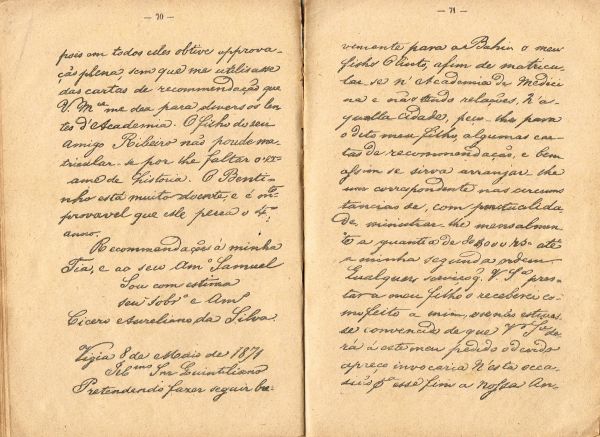 — 70 —
pois em todos elles obtive approva-
ção plena, sem que me utilisasse
das cartas de recommendação que
V. M.ce me deu para diversos len-
tes d'Academia. O filho do seu
amigo Ribeiro não poude ma-
tricular-se por lhe faltar o ex-
ame de historia. O Benti-
nho está muito doente, e é m.to
provavel que elle perca o 4.º
anno.
Recommendações á minha
Tia, e ao seu Am.º Samuel
Sou com estima
seu sobr.º e Am.º
Cicero Aureliano da Silva.
Vigia 8 de Maio de 1871
Ill.mo Snr Quintiliano
Pretendendo fazer seguir bre-
— 71 —
vemente para a Bahia o meu
filho Olinto, afim de matricu-
lar-se n'Academia de Medici-
na e não tendo relações, n'a-
quella cidade, peço-lhe para
o dito meu filho, algumas car-
tas de recommendação, e bem
assim se sirva arranjar-lhe
um correspondente nas circums-
tancias de, com pontualida-
de, ministrar-lhe mensalmen-
te a quantia de até
a minha segunda ordem.
Quaesquer serviços q. V. S.ª pres-
tar a meu filho receberei co-
mo feito a mim, e se não estives-
se convencido de que V. S.ª da-
rá á este meu pedido o devido
apreço invocaria n'esta occa-
sião p.ª esse fim a nossa an-